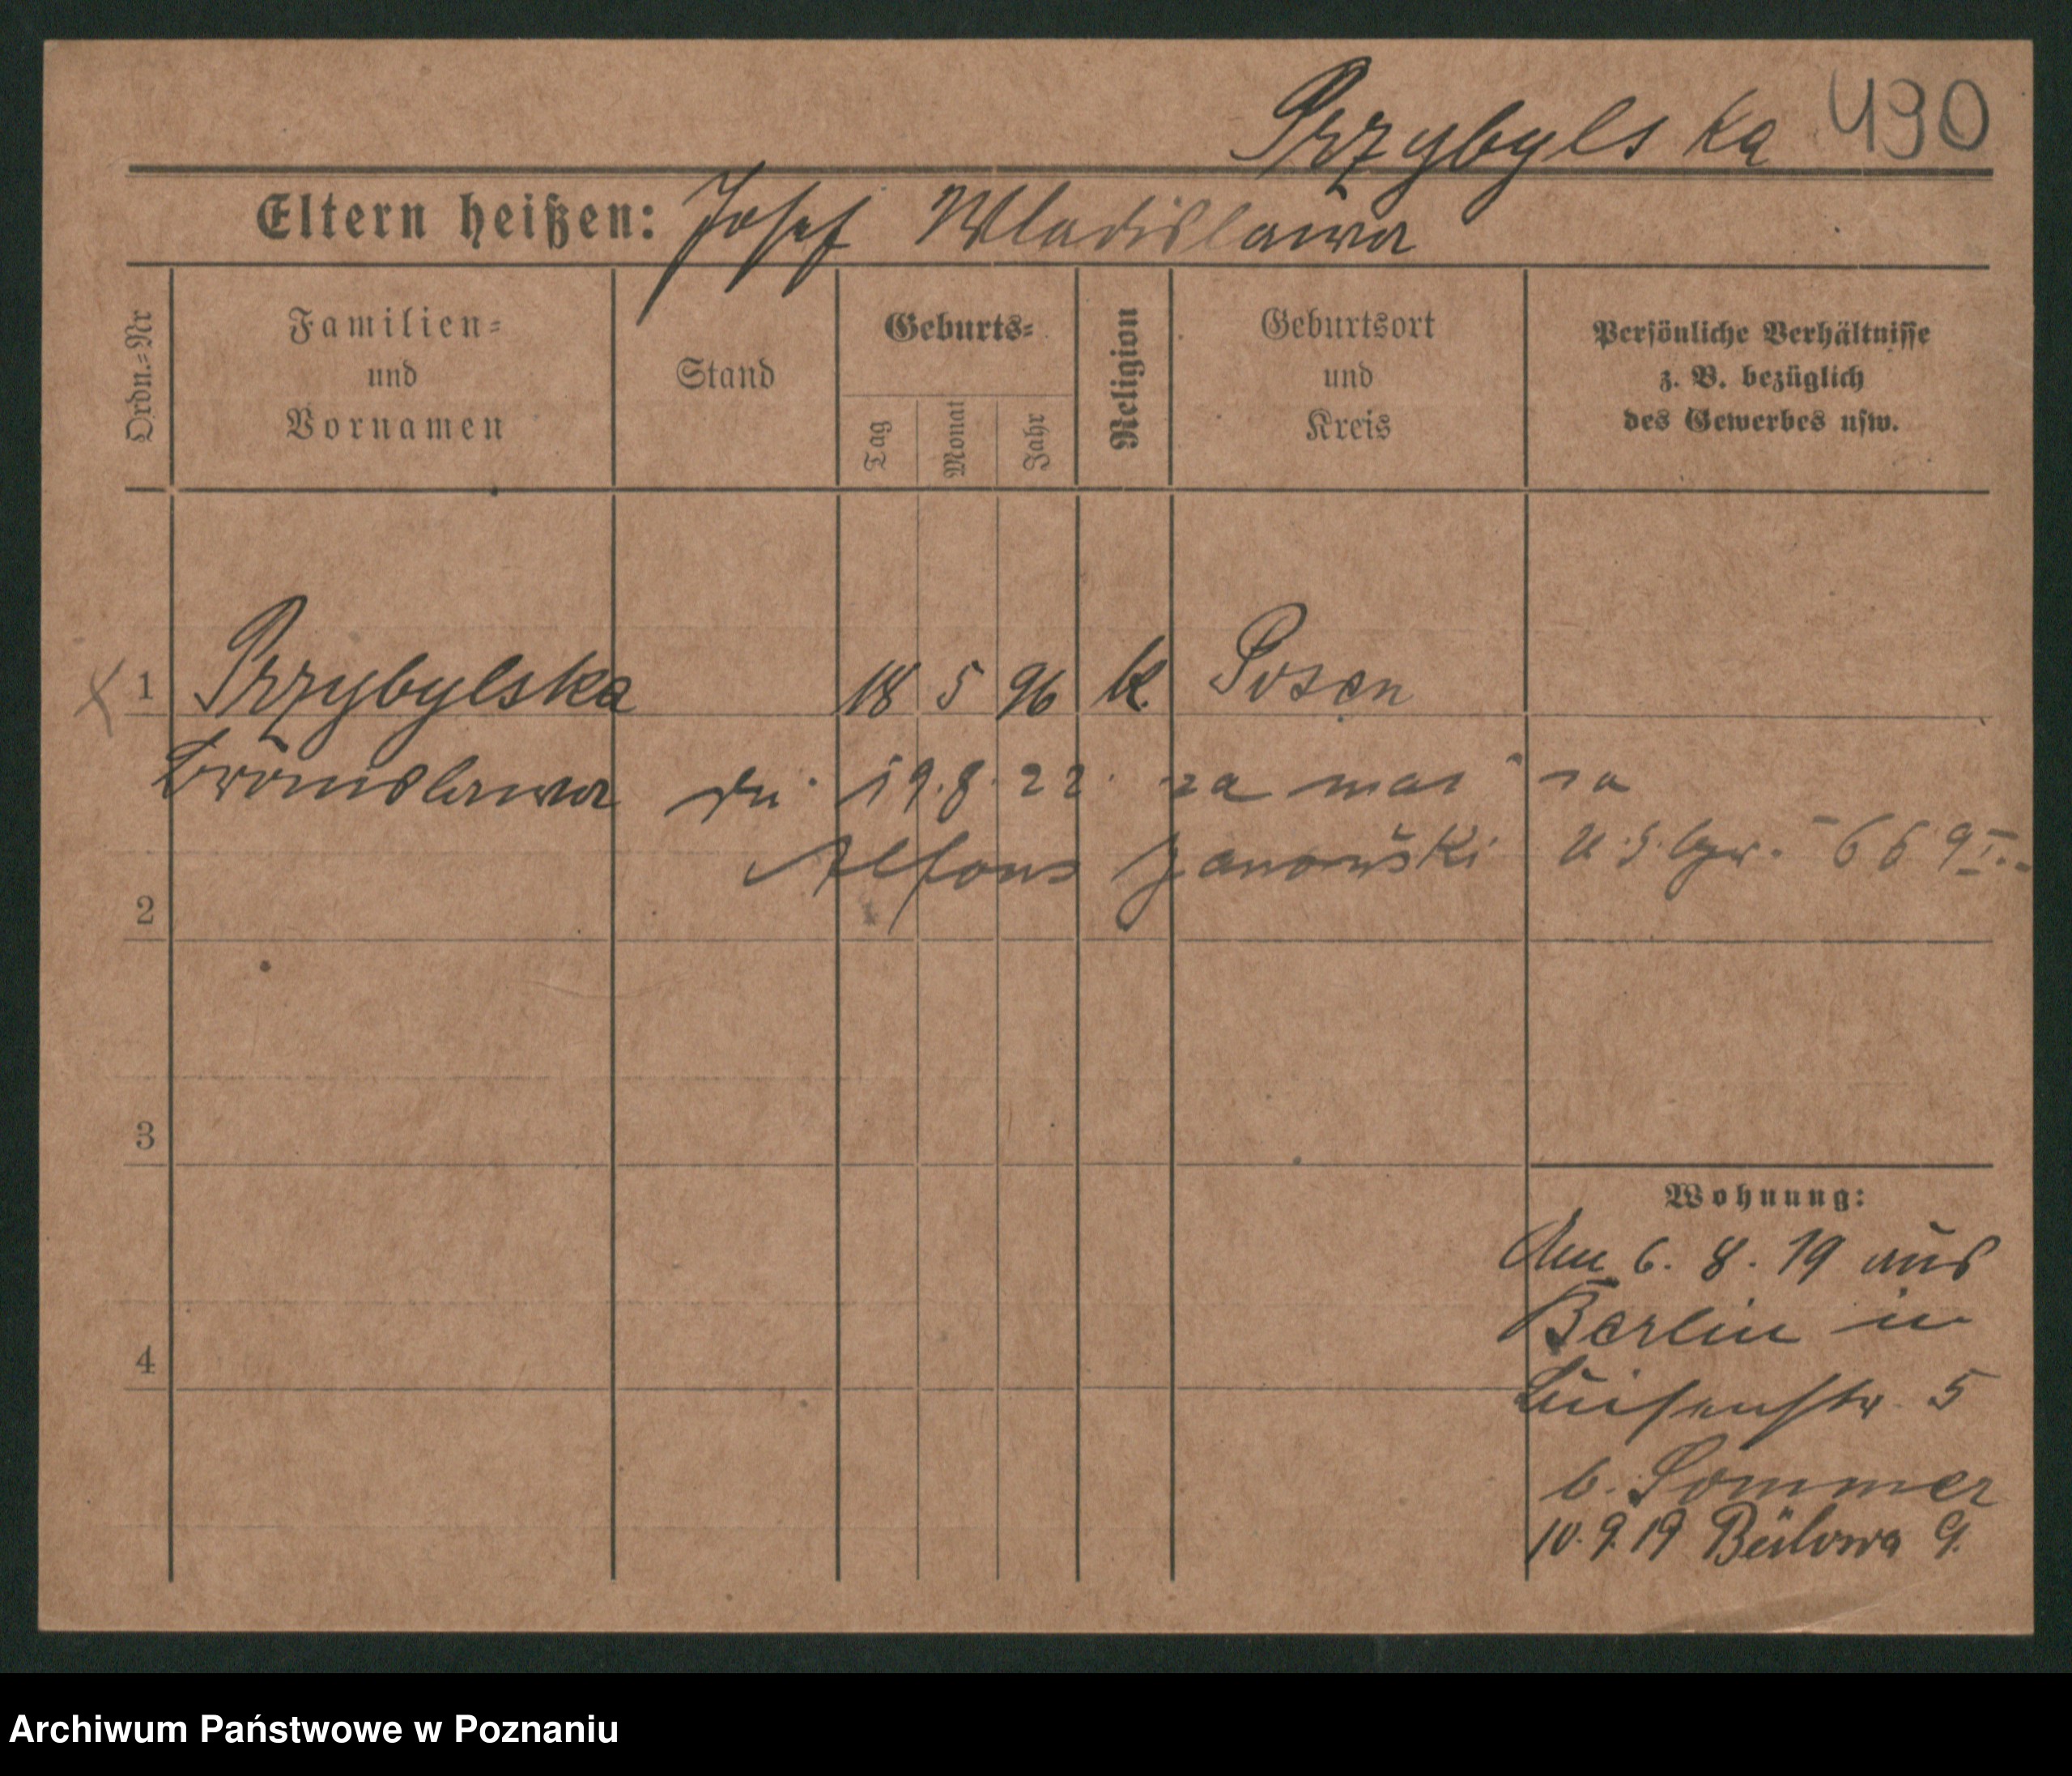 Przybylska 490
Eltern heißen: Josef Wladislawa
Ordn.=Nr
Familien=
und
Vornamen
Stand
Geburts=
Tag
Monat
Jahr
Religion
Geburtsort
und
Kreis
Persönliche Verhältnisse
z. B. bezüglich
des Gewerbes usw.
1 Przybylska 18 5 96 k. Posen
Bronislawa 19.8.22. za
Alfons Janowski 669
2
3
4
Wohnung:
Am 6. 8. 19 aus
Berlin in
Luisenstr. 5
b. Sommer
10.9.19 Bülowa 9.
Archiwum Państwowe w Poznaniu